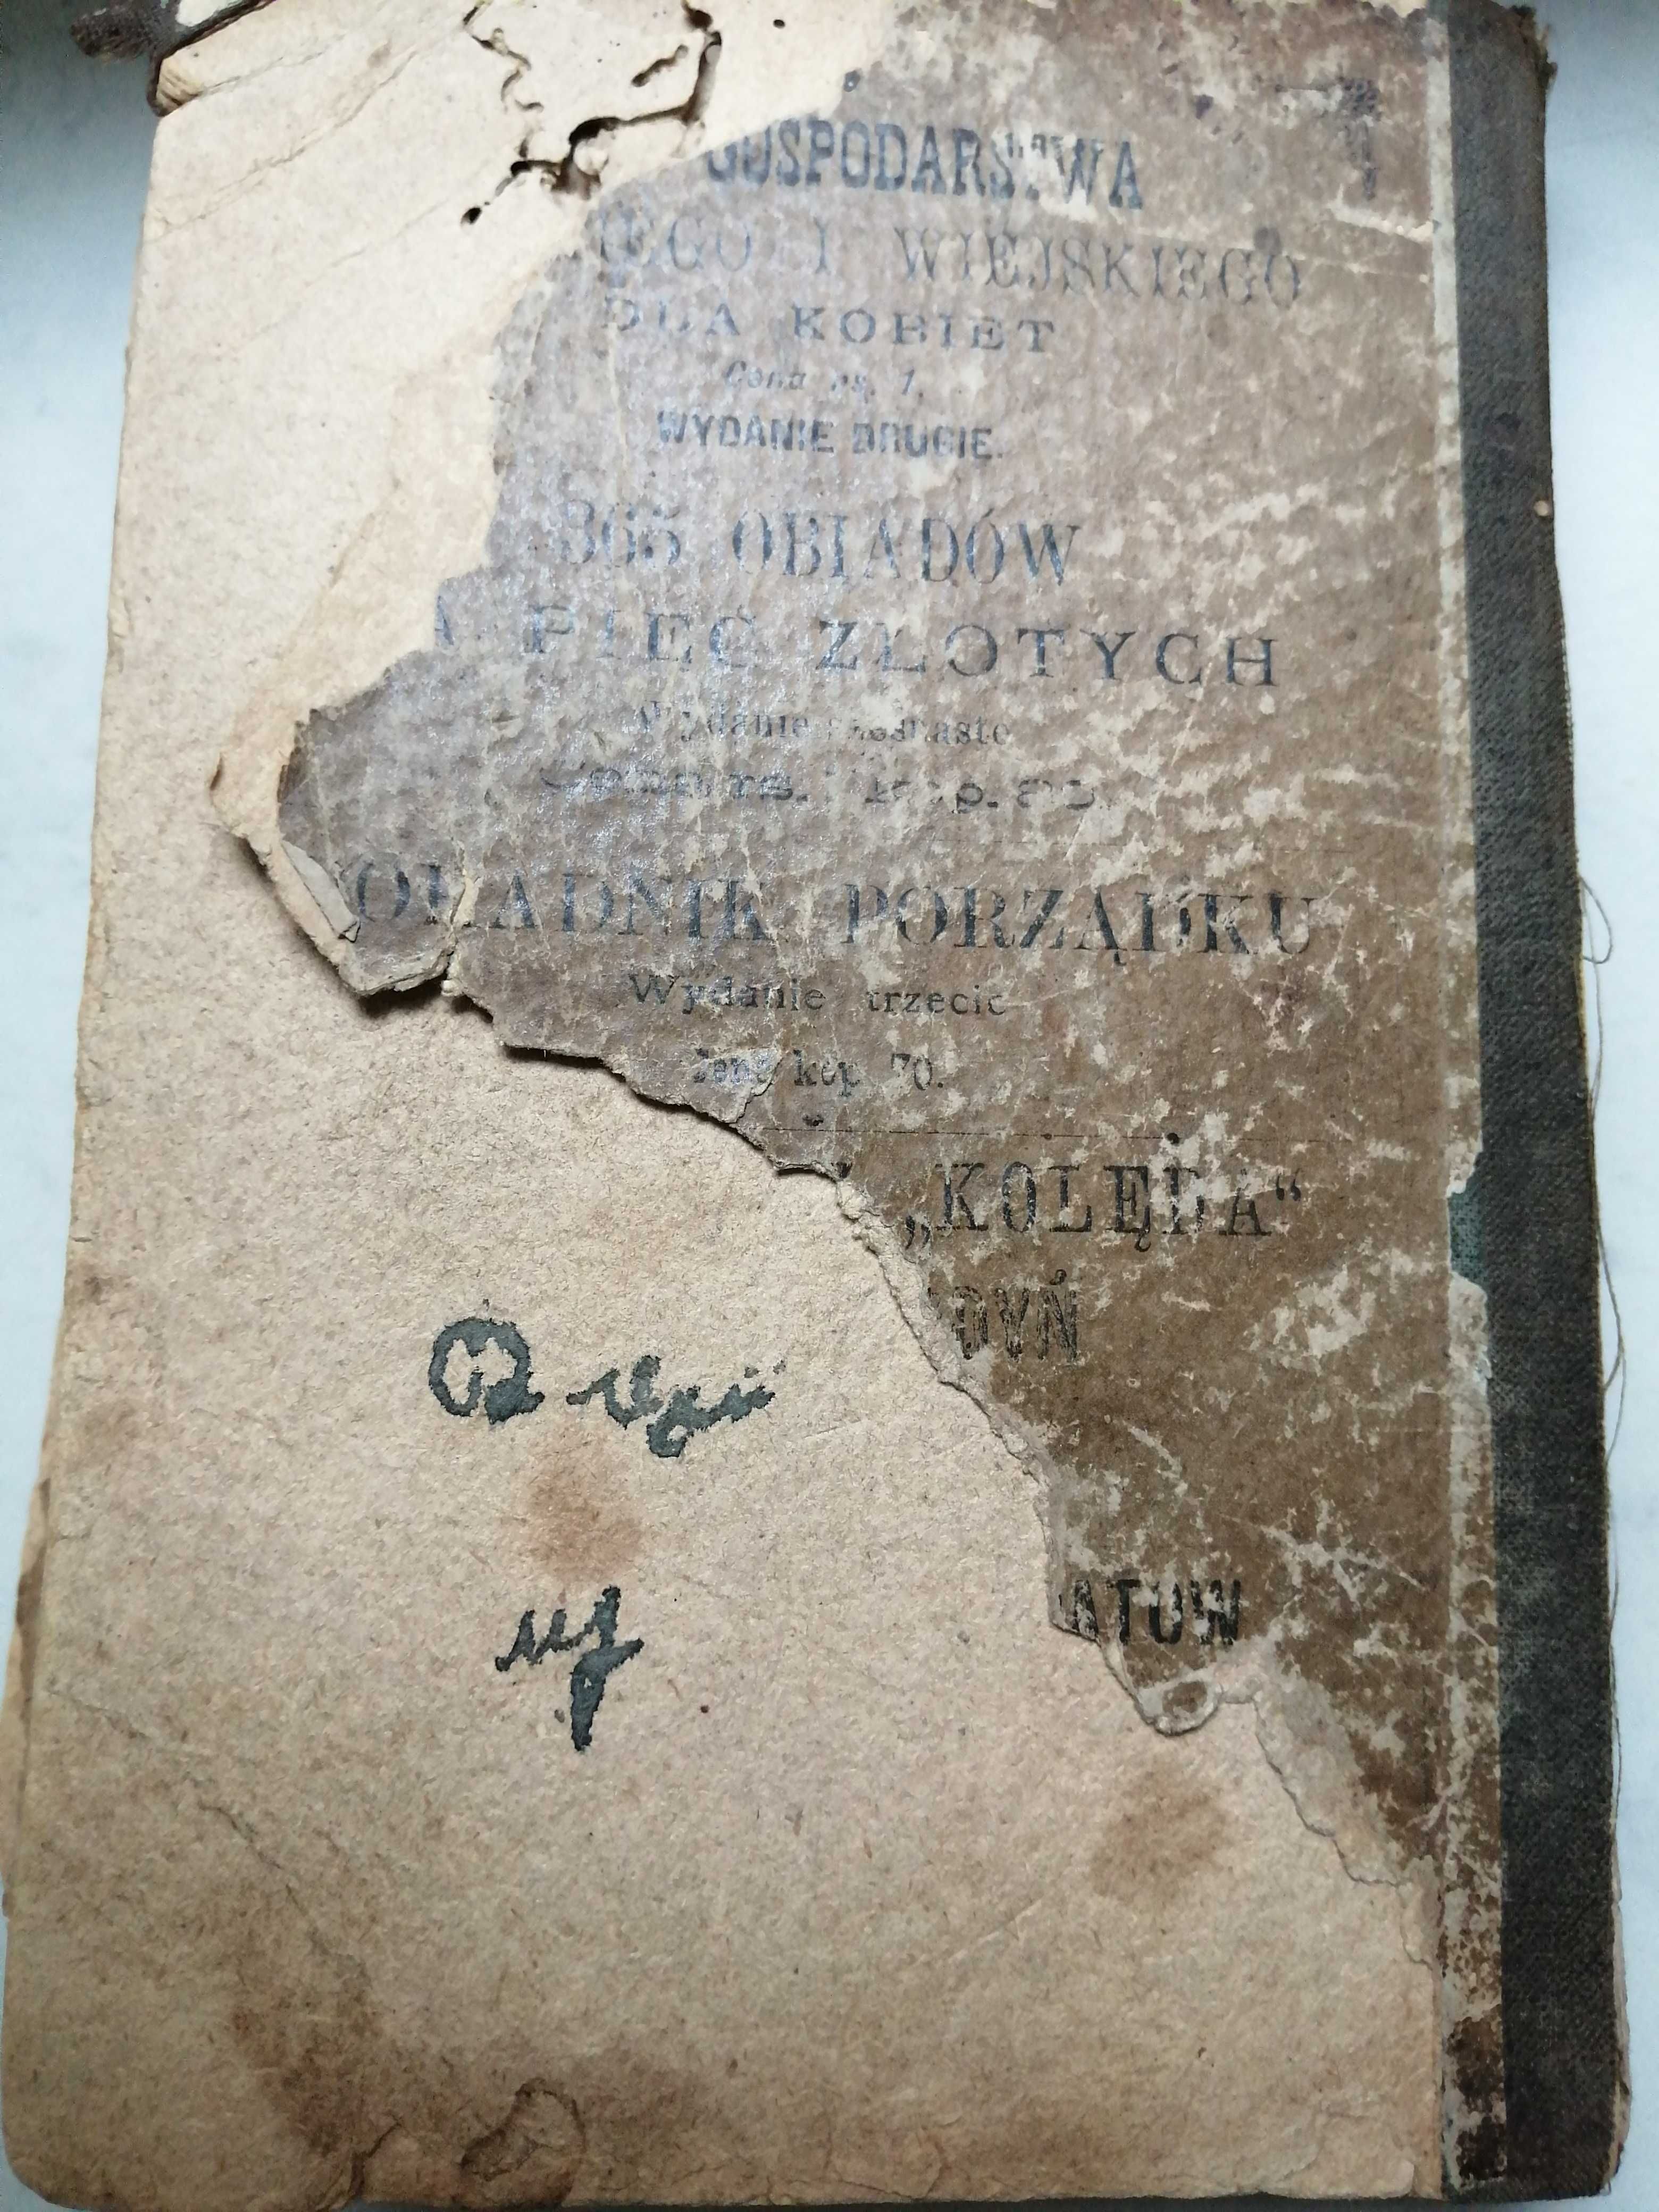 GOSPODARSTWA
IEGO I WIEJSKIEGO
DLA KOBIET
Cena rs. 1.
WYDANIE DRUGIE.
365 OBIADÓW
A PIĘĆ ZŁOTYCH
Wydanie
Cena rs. kop.
ORADNIK PORZĄDKU
Wydanie trzecie
Cena kop. 70.
„KOLĘDA“
DYŃ
ATÓW